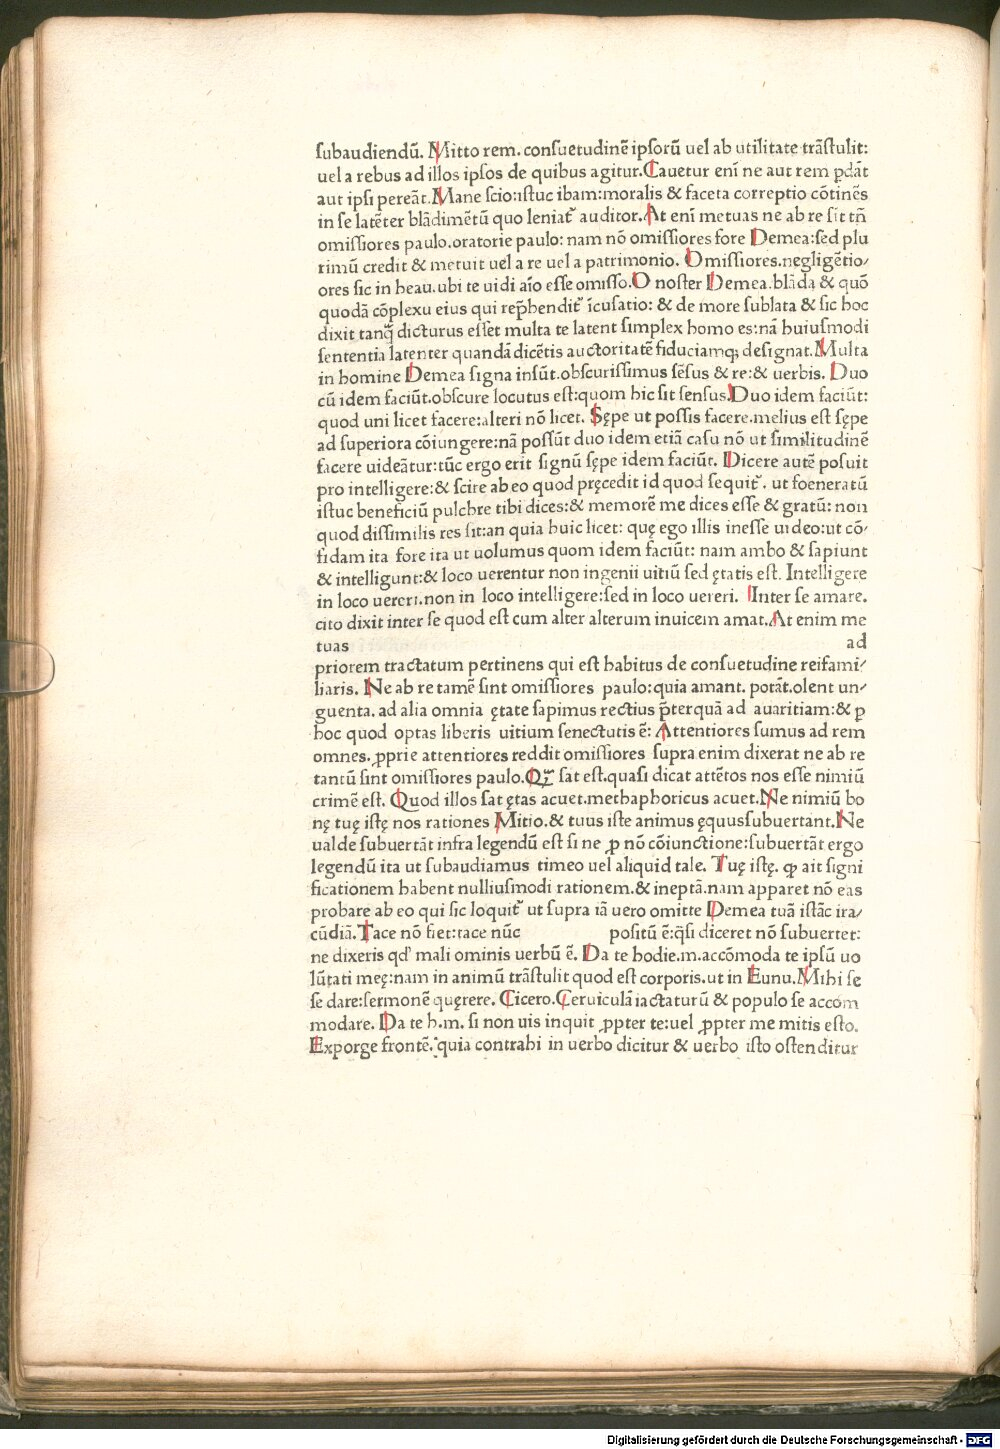 ſubaudiendū. Mitto rem. conſuetudinē ipſorū uel ab utilitate trāſtulit:
uel a rebus ad illos ipſos de quibus agitur. Cauetur enī ne aut rem ꝑdāt
aut ipſi pereāt. Mane ſcio:iſtuc ibam:moralis & faceta correptio cōtinēs
in ſe latēter blādimētū quo leniat᷑ auditor. At enī metuas ne ab re ſit tn̄
omiſſiores paulo.oratorie paulo: nam nō omiſſiores fore Demea:ſed plu
rimū credit & metuit uel a re uel a patrimonio. Omiſſiores.negligētio/
ores ſic in heau.ubi te uidi aīo eſſe omiſſo.O noſter Demea.blāda & quō
quodā cōplexu eius qui rep̄hendit᷑ īcuſatio: & de more ſublata & ſic hoc
dixit tanq̄ dicturus eſſet multa te latent ſimplex homo es:nā huiuſmodi
ſententia latenter quandā dicētis auctoritatē fiduciamq; deſignat. Multa
in homine Demea ſigna inſūt.obſcuriſſimus ſēſus & re:& uerbis. Duo
cū idem faciūt.obſcure locutus eſt:quom hic ſit ſenſus.Duo idem faciūt:
quod uni licet facere:alteri nō licet. Sępe ut poſſis facere.melius eſt ſępe
ad ſuperiora cōiungere:nā poſſūt duo idem etiā caſu nō ut ſimilitudinē
facere uideātur:tūc ergo erit ſignū ſępe idem faciūt. Dicere autē poſuit
pro intelligere:& ſcire ab eo quod pręcedit id quod ſequit᷑. ut foeneratū
iſtuc beneficiū pulchre tibi dices:& memorē me dices eſſe & gratū: non
quod diſſimilis res ſit:an quia huic licet: quę ego illis ineſſe uideo:ut cō/
fidam ita fore ita ut uolumus quom idem faciūt: nam ambo & ſapiunt
& intelligunt:& loco uerentur non ingenii uitiū ſed ętatis eſt. Intelligere
in loco uereri.non in loco intelligere:ſed in loco uereri. Inter ſe amare.
cito dixit inter ſe quod eſt cum alter alterum inuicem amat. At enim me
tuas ad
priorem tractatum pertinens qui eſt habitus de conſuetudine reifami/
liaris. Ne ab re tamē ſint omiſſiores paulo:quia amant. potāt.olent un/
guenta. ad alia omnia ętate ſapimus rectius p̄terquā ad auaritiam:& ꝑ
hoc quod optas liberis uitium ſenectutis ē: Attentiores ſumus ad rem
omnes. ꝓprie attentiores reddit omiſſiores ſupra enim dixerat ne ab re
tantū ſint omiſſiores paulo. Q; ſat eſt.quaſi dicat attētos nos eſſe nimiū
crimē eſt. Quod illos ſat ętas acuet.methaphoricus acuet. Ne nimiū bo
nę tuę iſtę nos rationes Mitio.& tuus iſte animus ęquusſubuertant. Ne
ualde ſubuertāt infra legendū eſt ſi ne ꝓ nō cōiunctione:ſubuertāt ergo
legendū ita ut ſubaudiamus timeo uel aliquid tale. Tuę iſtę. ꝙ ait ſigni
ficationem habent nulliuſmodi rationem.& ineptā.nam apparet nō eas
probare ab eo qui ſic loquit᷑ ut ſupra iā uero omitte Demea tuā iſtāc ira/
cūdiā. Tace nō fiet:tace nūc poſitū ē:q̄ſi diceret nō ſubuertet:
ne dixeris qd' mali ominis uerbū ē. Da te hodie.m.accōmoda te ipſū uo
lūtati meę:nam in animū trāſtulit quod eſt corporis.ut in Eunu. Mihi ſe
ſe dare:ſermonē quęrere. Cicero.Ceruiculā iactaturū & populo ſe accom
modare. Da te h.m. ſi non uis inquit ꝓpter te:uel ꝓpter me mitis eſto.
Exporge frontē. quia contrahi in uerbo dicitur & uerbo iſto oſtenditur
Digitalisierung gefördert durch die Deutsche Forschungsgemeinschaft - DFG